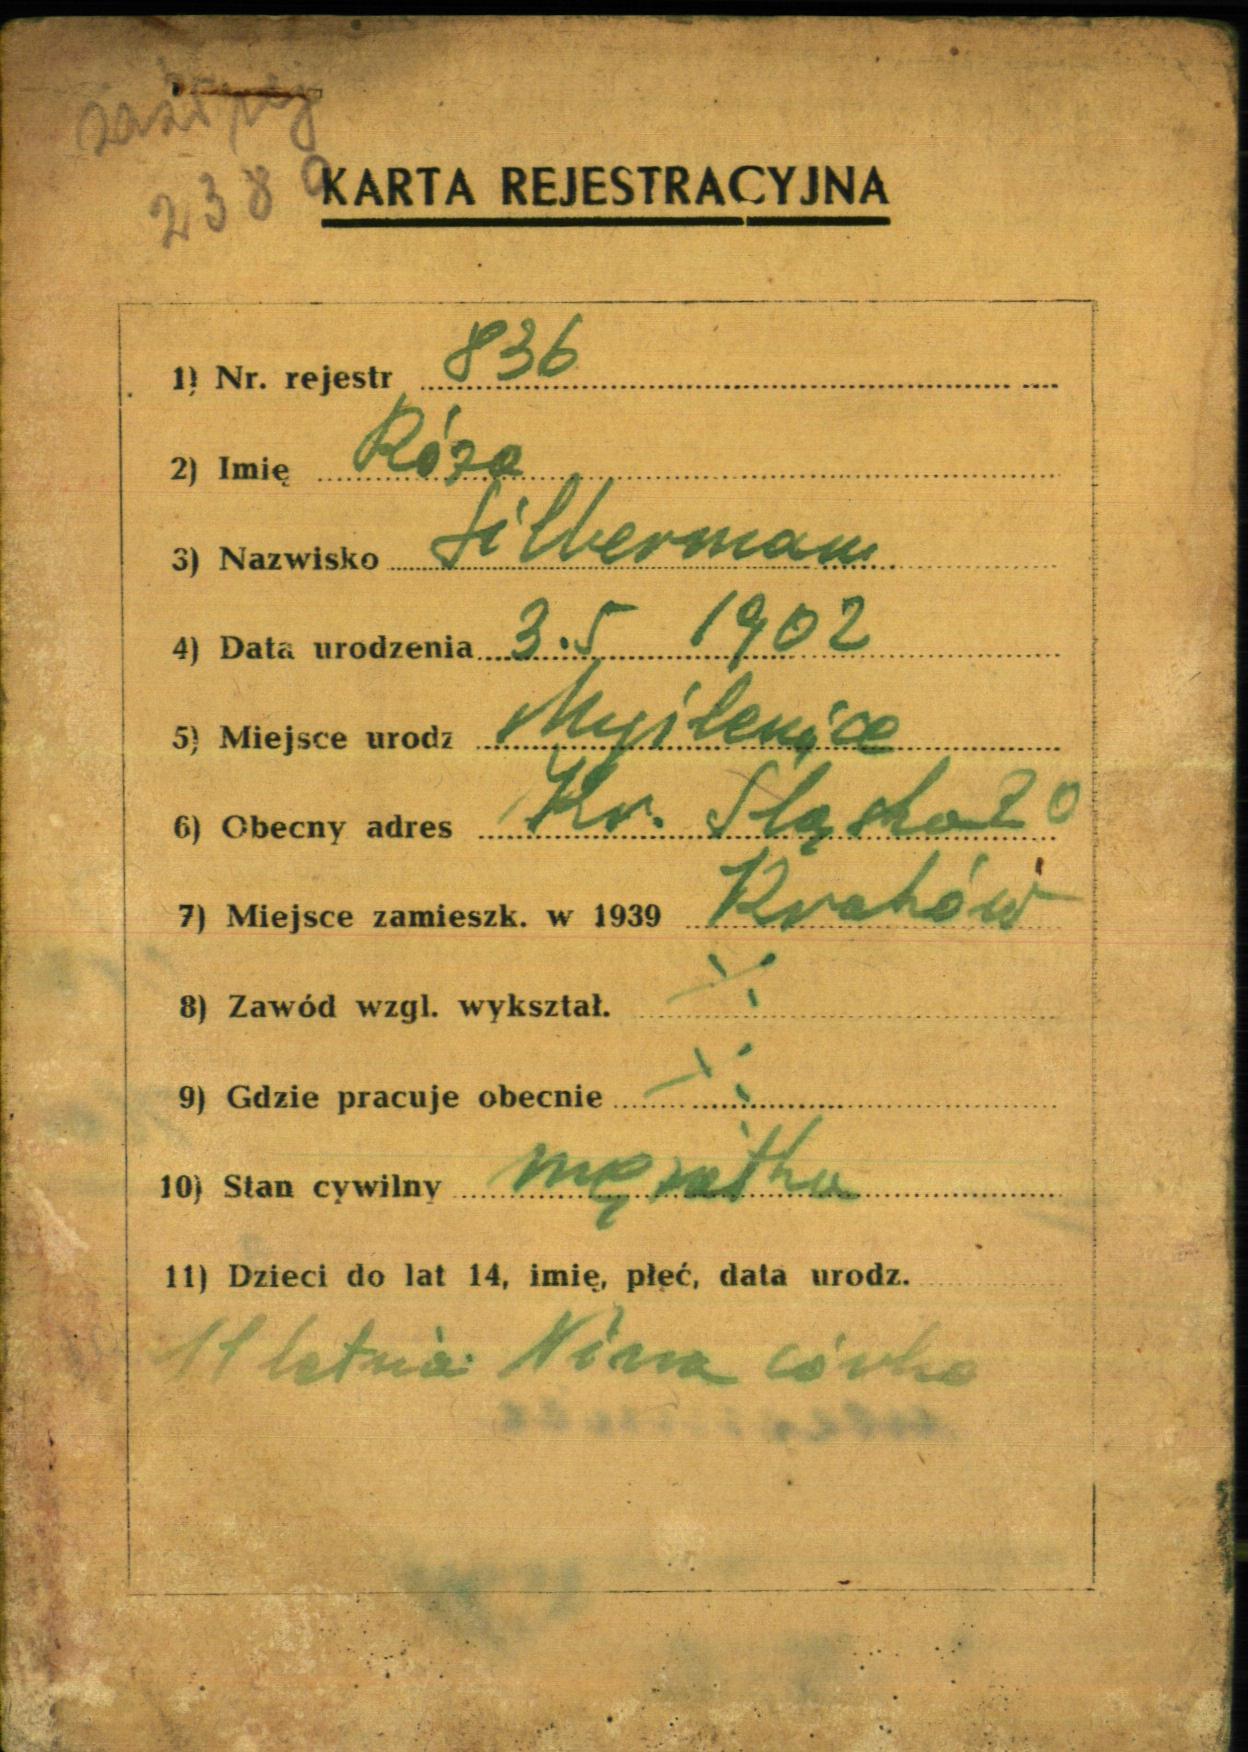 2389
KARTA REJESTRACYJNA
1) Nr. rejestr 836
2) Imię Róża
3) Nazwisko Silbermann
4) Data urodzenia 3.5 1902
5) Miejsce urodz Myślenice
6) Obecny adres Kr. Śląska 20
7) Miejsce zamieszk. w 1939 Kraków
8) Zawód wzgl. wykształ.
9) Gdzie pracuje obecnie
10) Stan cywilny mężatka
11) Dzieci do lat 14, imię, płeć, data urodz.
11 letnia Nina córka